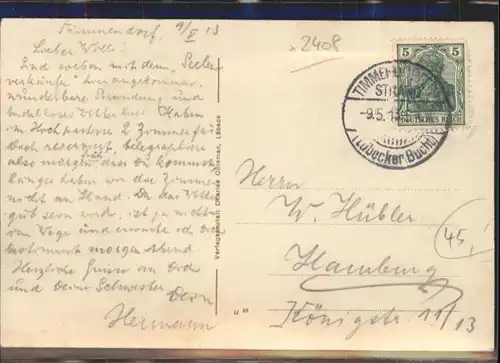 Timmendorf, 9/V 13
Lieber Willi!
Sind soeben mit dem "Seelen
verkäufer" hier angekommen,
wunderbare Brandung und
tadelloses Wetter hier. Haben
im Hochparterre 2 Zimmer für
Dich reserviert, telegraphiere
also morgen früh, da Du kommst
länger haben wir die Zimmer
nicht an Hand. Da das Wetter
gut sein wird, ist ja nichts
im Wege und erwarte ich Dich
bestimmt morgen Abend.
Herzliche Grüsse an Dich
und Deine Schwester Dein
Hermann
Verlagsanstalt Lübeck
x 2408
5 5
DEUTSCHES REICH
TIMMENDORFER
STRAND
-9.5.13
(Lübecker Bucht)
Herrn
W. Hübler
Hamburg
Königstr. 11/13
45,